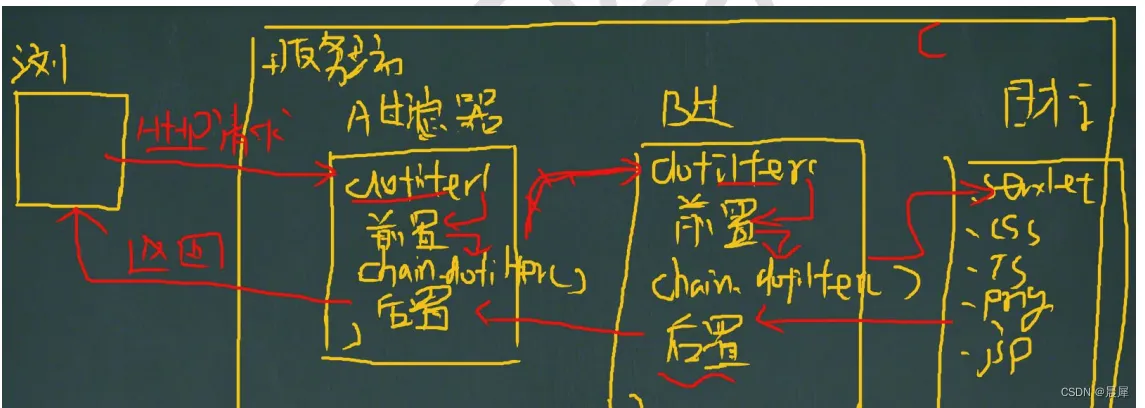 浏
服务端
HTTP请求
A过滤器
doFilter(
前置
chain.doFilter()
后置
)
B过
doFilter(
前置
chain.doFilter()
后置
)
目标
.Servlet
.CSS
.JS
.png
.jsp
返回
CSDN @晨犀